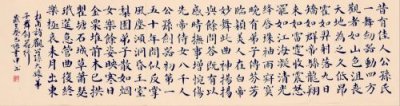 昔有佳人公孫氏
一舞劍器動四方
觀者如山色沮喪
天地為之久低昂
如羿射九日落
矯如群帝驂龍翔
來如雷霆收震怒
罷如江海凝清光
絳唇珠袖兩寂寞
晚有弟子傳芬芳
臨潁美人在白帝
妙舞此曲神揚揚
與余問答既有以
感時撫事增惋傷
先帝侍女八千人
公孫劍器初第一
五十年間似反掌
風塵澒洞昏王室
梨園弟子散如煙
女樂餘姿映寒日
金粟堆前木已拱
瞿塘石城草蕭瑟
玳筵急管曲復終
樂極哀來月東出
杜甫詩觀公孫大娘弟
子舞劍器行